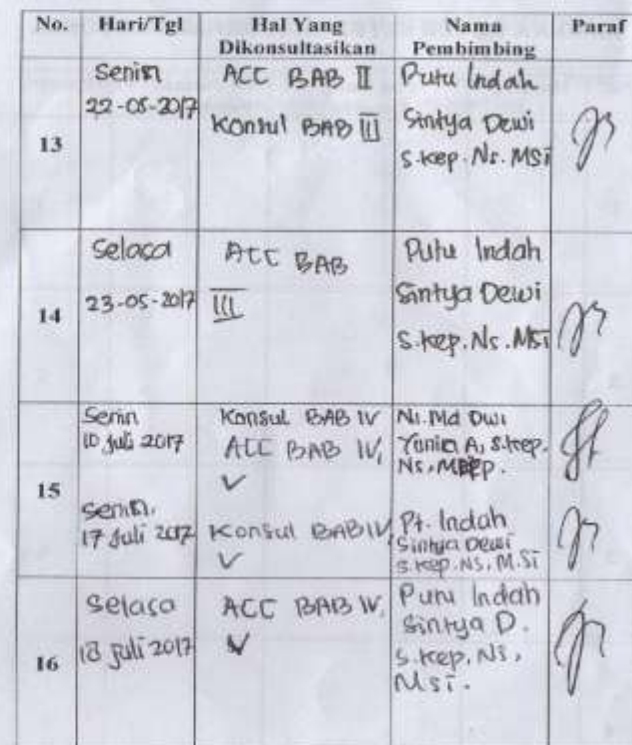 No. Hari/Tgl Hal Yang Dikonsultasikan Nama Pembimbing Paraf
13
Senin
22-05-2017
ACC BAB II
Konsul BAB III
Putu Indah
Sintya Dewi
S.Kep.Ns.MSi
14
Selasa
23-05-2017
ACC BAB
III
Putu Indah
Sintya Dewi
S.Kep.Ns.MSi
15
Senin
10 Juli 2017
Konsul BAB IV
ACC BAB IV,
Ni.Md Dwi
A, S.Kep.
Ns,
Senin,
17 Juli 2017
Konsul BAB IV,
Pt. Indah
Sintya Dewi
S.Kep.NS, M.Si
16
Selasa
18 Juli 2017
ACC BAB IV,
Putu Indah
Sintya D.
S.Kep, Ns,
MSi.